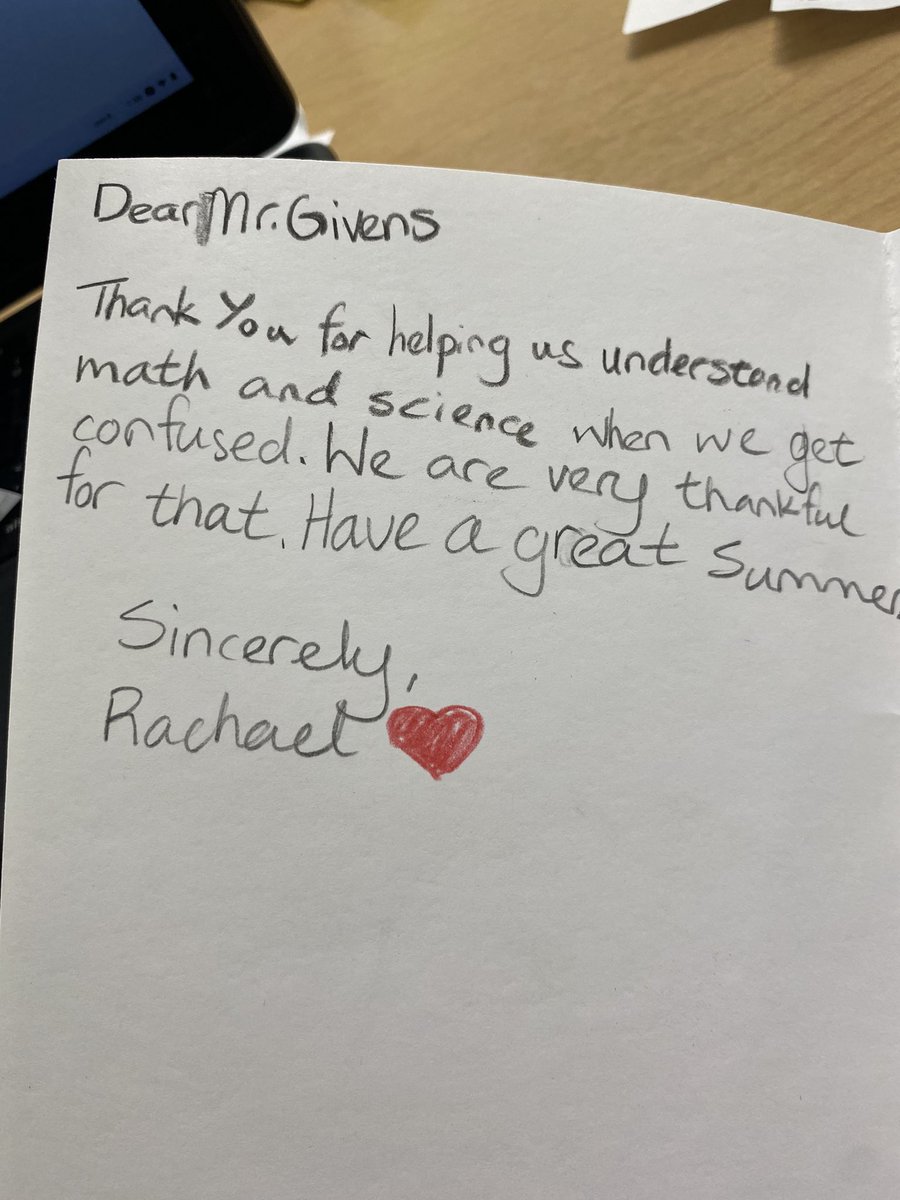 Dear Mr. Givens
Thank You for helping us understand
math and science when we get
confused. We are very thankful
for that. Have a great summer.
Sincerely,
Rachael